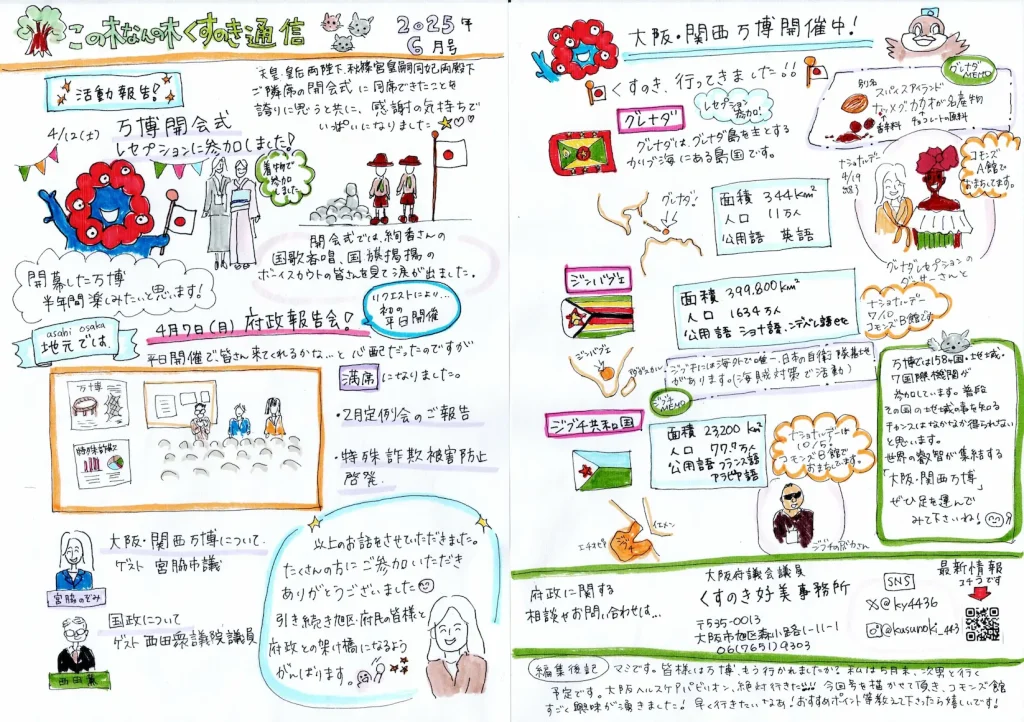 この木なんの木くすのき通信
2025年
6月号
活動報告!
4/12(土)
万博開会式
レセプションに参加しました!
天皇・皇后両陛下、秋篠宮皇嗣同妃両殿下
ご隣席の開会式に同席できたことを
誇りに思うと共に、感謝の気持ちで
いっぱいになりました
着物で
参加
しました
開会式では、絢香さんの
国歌斉唱、国旗掲揚の
ボーイスカウトの皆さんを見て涙が出ました。
開幕した万博
半年間楽しみたいと思います!
asahi osaka
地元では
4月7日(月) 府政報告会!
リクエストにより…
初の
平日開催
平日開催で皆さん来てくれるかな…と心配だったのですが
満席になりました。
万博
特殊詐欺
・2月定例会のご報告
・特殊詐欺被害防止
啓発
大阪・関西万博について
ゲスト 宮脇市議
宮脇のぞみ
国政について
ゲスト 西田衆議院議員
西田薫
以上のお話をさせていただきました。
たくさんの方にご参加いただき
ありがとうございました
引き続き旭区・府民の皆様と
府政との架け橋になるよう
がんばります。
大阪・関西万博開催中!
くすのき、行ってきました!!
グレナダ
レセプション
参加!
グレナダは、グレナダ島を主とする
カリブ海にある島国です。
グレナダ
MEMO
別名
スパイスアイランド
ナツメグ、カカオが名産物
香辛料
チョコレートの原料
グレナダ!
面積 344km²
人口 11万人
公用語 英語
ナショナルデー
4/19
コモンズ
A館で
おまちしてます。
グレナダレセプションの
ダンサーさんと
ジンバブエ
面積 399,800km²
人口 1634万人
公用語 ショナ語、ンデベレ語etc
ナショナルデー
7/10
コモンズB館です
ジンバブエ
ジブチには海外で唯一、日本の自衛隊基地
があります。(海賊対策で活動)
ジブチ
MEMO
ジブチ共和国
面積 23200km²
人口 77.7万人
公用語 フランス語
アラビア語
ナショナルデーは
10/5!
コモンズB館で
おまちしています。
イエメン
エチオピア
ジブチ
万博では158ヶ国・地域、
7国際機関が
参加しています。普段
その国の地域の事を知る
チャンスはなかなか得られない
と思います。
世界の叡智が集結する
「大阪・関西万博」
ぜひ足を運んで
みて下さいね!
府政に関する
相談やお問い合わせは…
大阪府議会議員
くすのき好美事務所
〒535-0013
大阪市旭区森小路1-11-1
06(7651)9303
SNS
X@ky4436
@kusunoki_443
最新情報
コチラです
編集後記
マミです。皆様は万博、もう行かれましたか?私は5月末、次男と行く
予定です。大阪ヘルスケアパビリオン、絶対行きたい!!! 今回号を描かせて頂き、コモンズ館
すごく興味が湧きました!早く行きたいなあ!おすすめポイント等教えて下さったら嬉しいです!